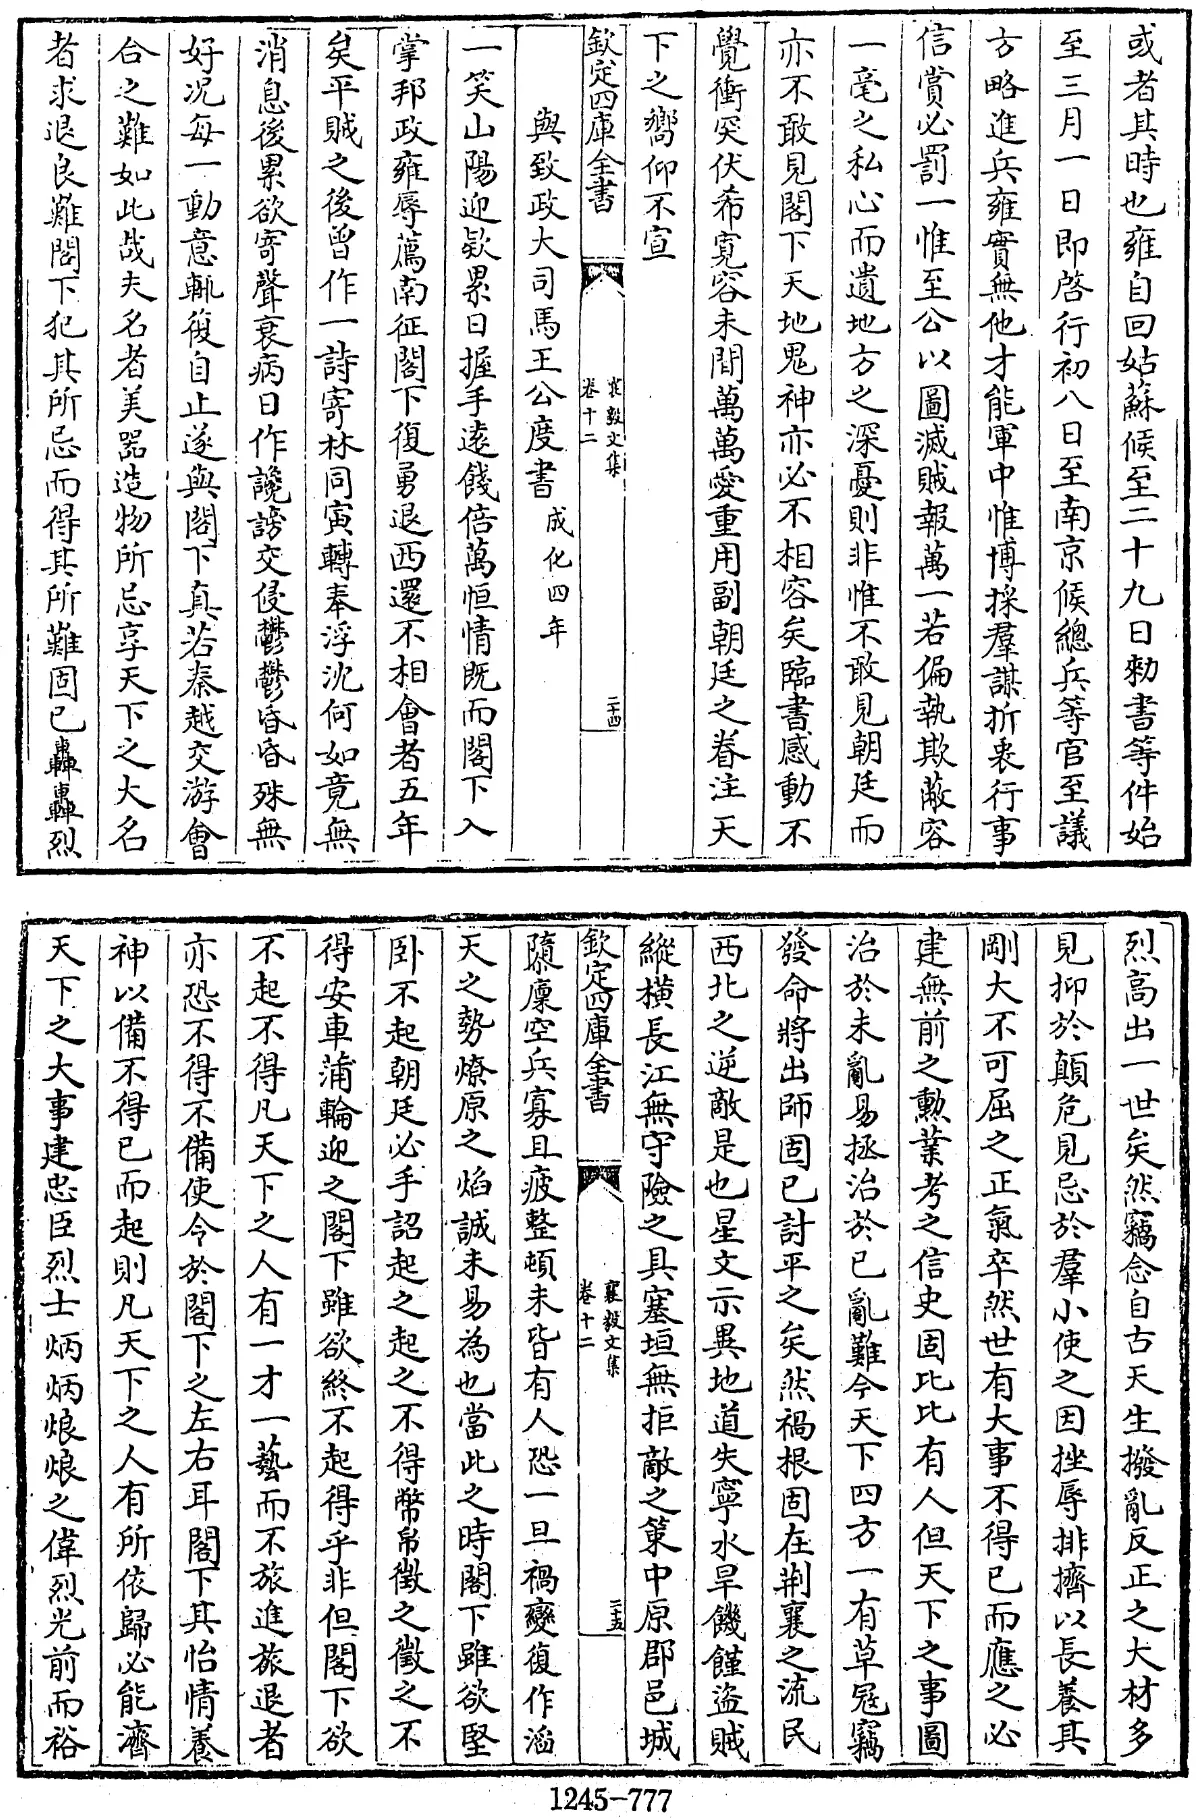 或者其時也雍自回姑蘇候至二十九日勑書等件始
至三月一日即啓行初八日至南京候總兵等官至議
方略進兵雍實無他才能軍中惟博採羣謀折衷行事
信賞必罰一惟至公以圖滅賊報萬一若偏執欺蔽容
一毫之私心而遺地方之深憂則非惟不敢見朝廷而
亦不敢見閣下天地鬼神亦必不相容矣臨書感動不
覺衝突伏希寛容未間萬萬愛重用副朝廷之眷注天
下之嚮仰不宣
欽定四庫全書
襄毅文集
卷十二
二十四
與致政大司馬王公度書成化四年
一笑山陽迎欵累日握手遠餞倍萬恒情既而閣下入
掌邦政雍辱薦南征閣下復勇退西還不相會者五年
矣平賊之後曾作一詩寄林同寅轉奉浮沈何如竟無
消息後累欲寄聲衰病日作讒謗交侵鬱鬱昏昏殊無
好况每一動意輒復自止遂與閣下真若秦越交游會
合之難如此哉夫名者美器造物所忌享天下之大名
者求退良難閣下犯其所忌而得其所難固已轟轟烈
烈高出一世矣然竊念自古天生撥亂反正之大材多
見抑於顛危見忌於羣小使之因挫辱排擠以長養其
剛大不可屈之正氣卒然世有大事不得已而應之必
建無前之勲業考之信史固比比有人但天下之事圖
治於未亂易拯治於已亂難今天下四方一有草冦竊
發命將出師固已討平之矣然禍根固在荆襄之流民
西北之逆敵是也星文示異地道失寧水旱饑饉盜賊
縱横長江無守險之具塞垣無拒敵之策中原郡邑城
欽定四庫全書
襄毅文集
卷十二
二十五
隳廪空兵寡且疲整頓未皆有人恐一旦禍變復作滔
天之勢燎原之焰誠未易為也當此之時閣下雖欲堅
卧不起朝廷必手詔起之起之不得幣帛徵之徵之不
得安車蒲輪迎之閣下雖欲終不起得乎非但閣下欲
不起不得凡天下之人有一才一藝而不旅進旅退者
亦恐不得不備使令於閣下之左右耳閣下其怡情養
神以備不得已而起則凡天下之人有所依歸必能濟
天下之大事建忠臣烈士炳炳烺烺之偉烈光前而裕
1245-777